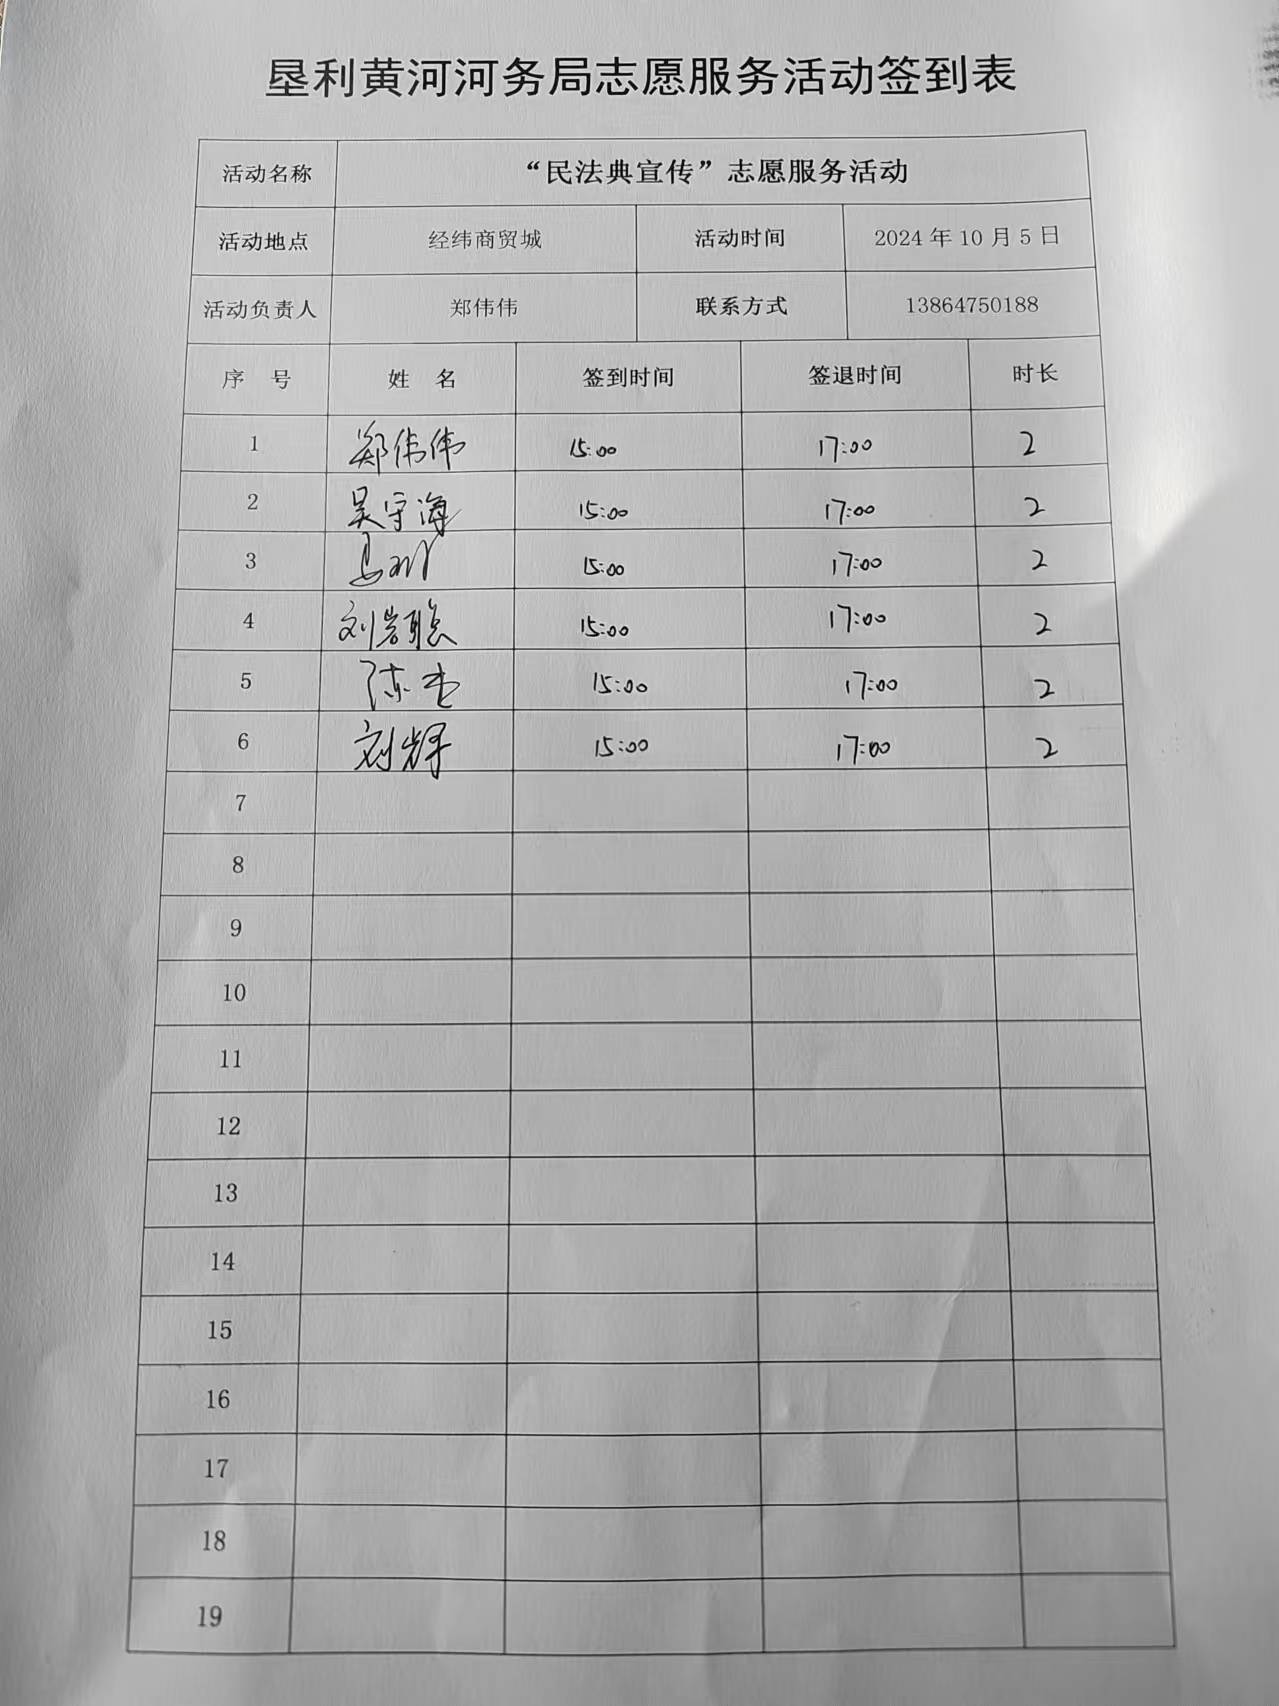 垦利黄河河务局志愿服务活动签到表
活动名称 “民法典宣传”志愿服务活动
活动地点 经纬商贸城 活动时间 2024年10月5日
活动负责人 郑伟伟 联系方式 13864750188
序 号 姓 名 签到时间 签退时间 时长
1 郑伟伟 15:00 17:00 2
2 吴宇海 15:00 17:00 2
3 15:00 17:00 2
4 刘岩聪 15:00 17:00 2
5 陈杰 15:00 17:00 2
6 刘辉 15:00 17:00 2
7
8
9
10
11
12
13
14
15
16
17
18
19